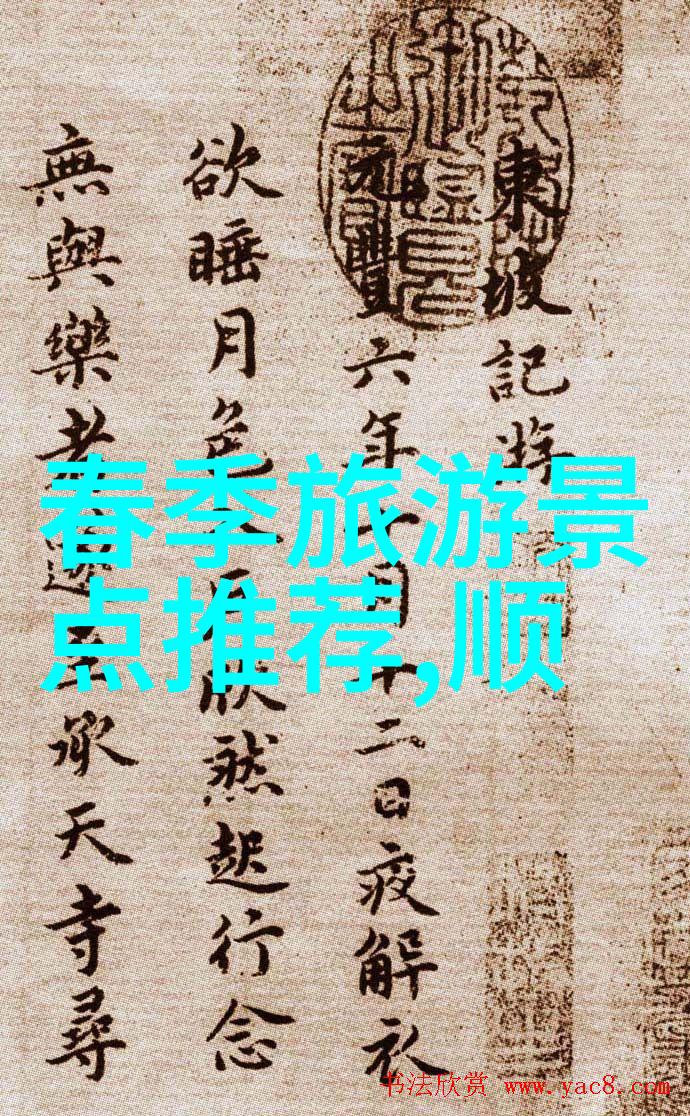 東坡記游
元豐六年十月十二日夜解衣
欲睡月色入戶欣然起行念
無與樂者遂至承天寺尋
春季旅游景
点推荐,顺
书法欣赏 www.yac8.com